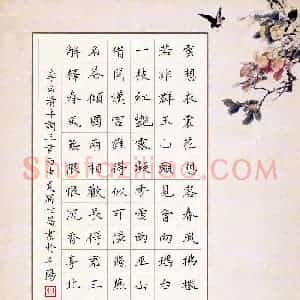 雲想衣裳花想容春風拂檻
若非群玉山頭見會向瑶臺
一枝紅艷露凝香雲雨巫山
借問漢宮誰得似可憐飛燕
名花傾國兩相歡長得君王
解釋春風無限恨沉香亭北
李白清平調三章